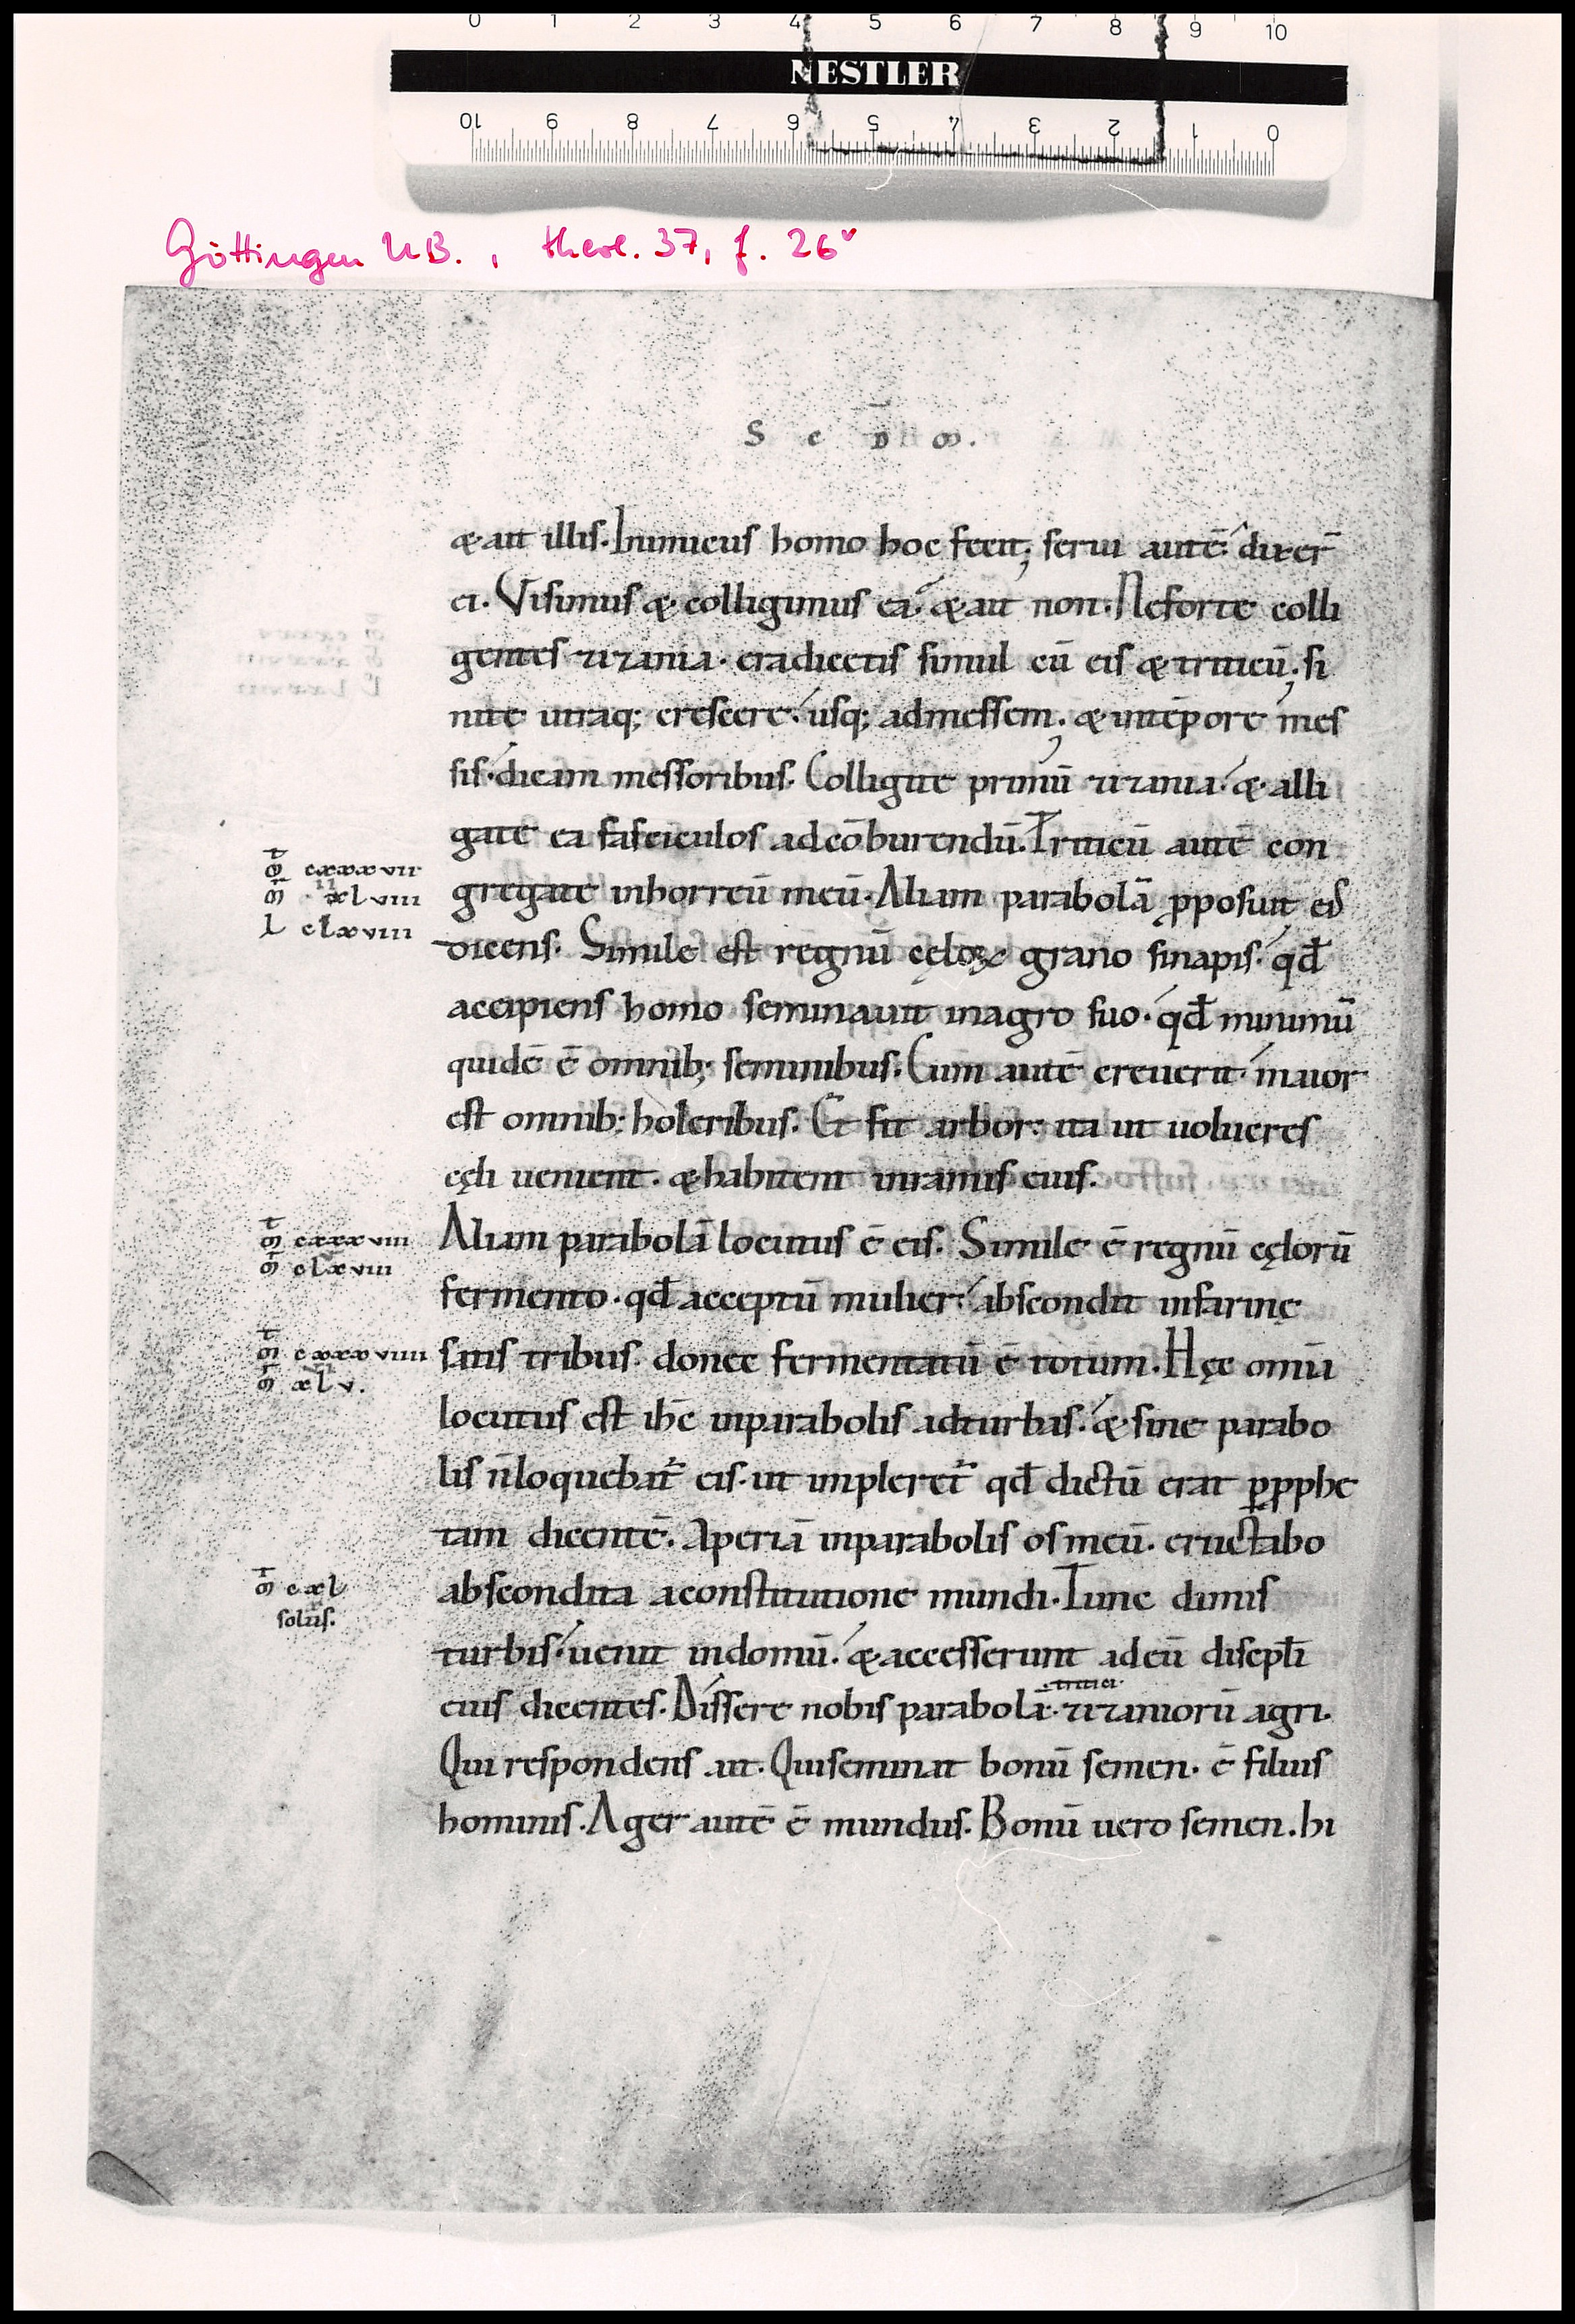 0 1 2 3 4 5 6 7 8 9 10
NESTLER
10 9 8 7 6 5 4 3 2 1 0
Göttingen UB., theol. 37, f. 26v
S c D̄ m.
& ait illis. Inimicus homo hoc fecit; serui autē dixer̄
ei. Vis imus & colligimus ea. & ait non. Neforte colli
gentes zizania. eradicetis simul cū eis & triticū; si
nite utraq; crescere. usq; admessem. & intēpore mes
sis. dicam messoribus. Colligite primū zizania. & alli
gate ea fasciculos adcōburendū. Triticū autē con
m̄ cxxxvii
gregate inhorreū meū. Aliam parabolā ꝓposuit eis
m̄ xlviii
L clxviii
dicens. Simile est regnū cęloꝝ grano sinapis. qđ
accipiens homo seminauit inagro suo. qđ minimū
quidē ē omnib; seminibus. Cum autē creuerit. maior
est omnib; holeribus. Et fit arbor. ita ut uolucres
cęli ueniant. & habitent inramis eius.
m̄ cxxxviii
Aliam parabolā locutus ē eis. Simile ē regnū cęlorū
m̄ clxviii
fermento. qđ acceptū mulier. abscondit infarinę
m̄ cxxxviiii
satis tribus. donec fermentatū ē totum. Hęc omīa
m̄ xlv.
locutus est ihc̄ inparabolis adturbas. & sine parabo
lis n̄ loquebat̄ eis. ut impleret̄ qđ dictū erat ꝑꝓphe
tam dicentē. Aperiā inparabolis os meū. eructabo
m̄ cxl
solus.
abscondita aconstitutione mundi. Tunc dimis
turbis. uenit indomū. & accesserunt adeū discipłi
tritici
eius dicentes. Dissere nobis parabolā. zizaniorū agri.
Qui respondens ait. Qui seminat bonū semen. ē filius
hominis. Ager autē ē mundus. Bonū uero semen. hi